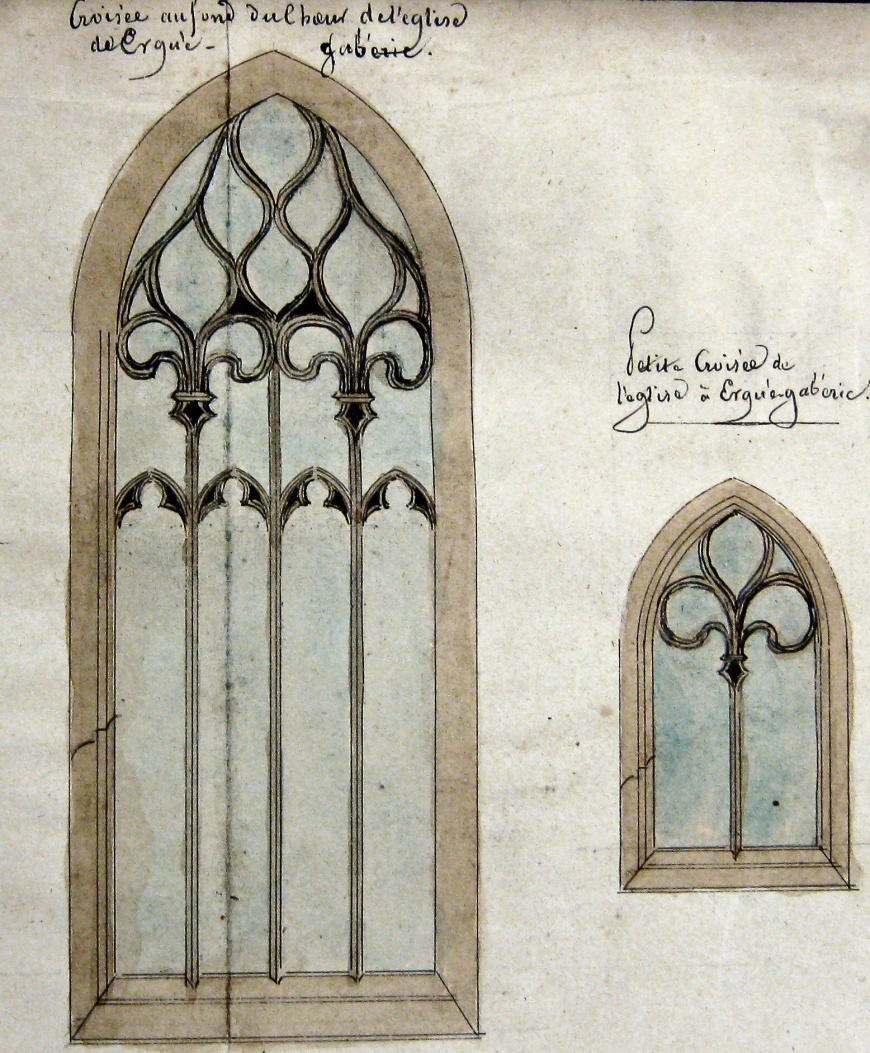 Croisée au fond du Chœur de l'eglise
de Ergué - gabéric.
Petite Croisée de
l'eglise à Ergué-gabéric.